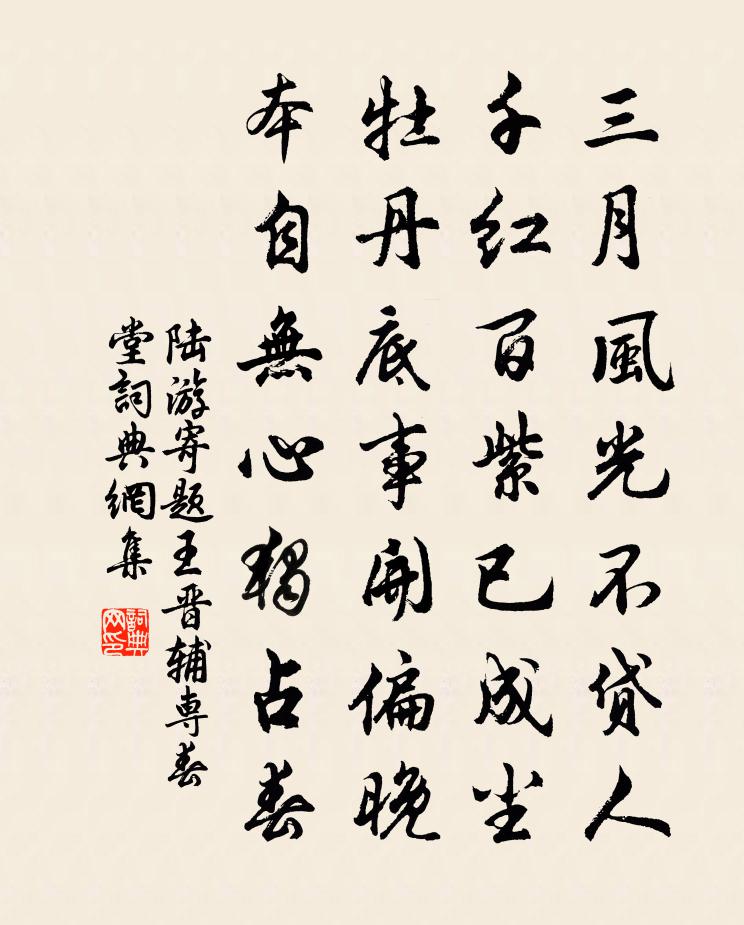 三月風光不貸人
千紅百紫已成尘
牡丹底事開偏晚
本自無心獨占春
陸游寄題王晋輔專春
堂詞典網集
詞典
网印